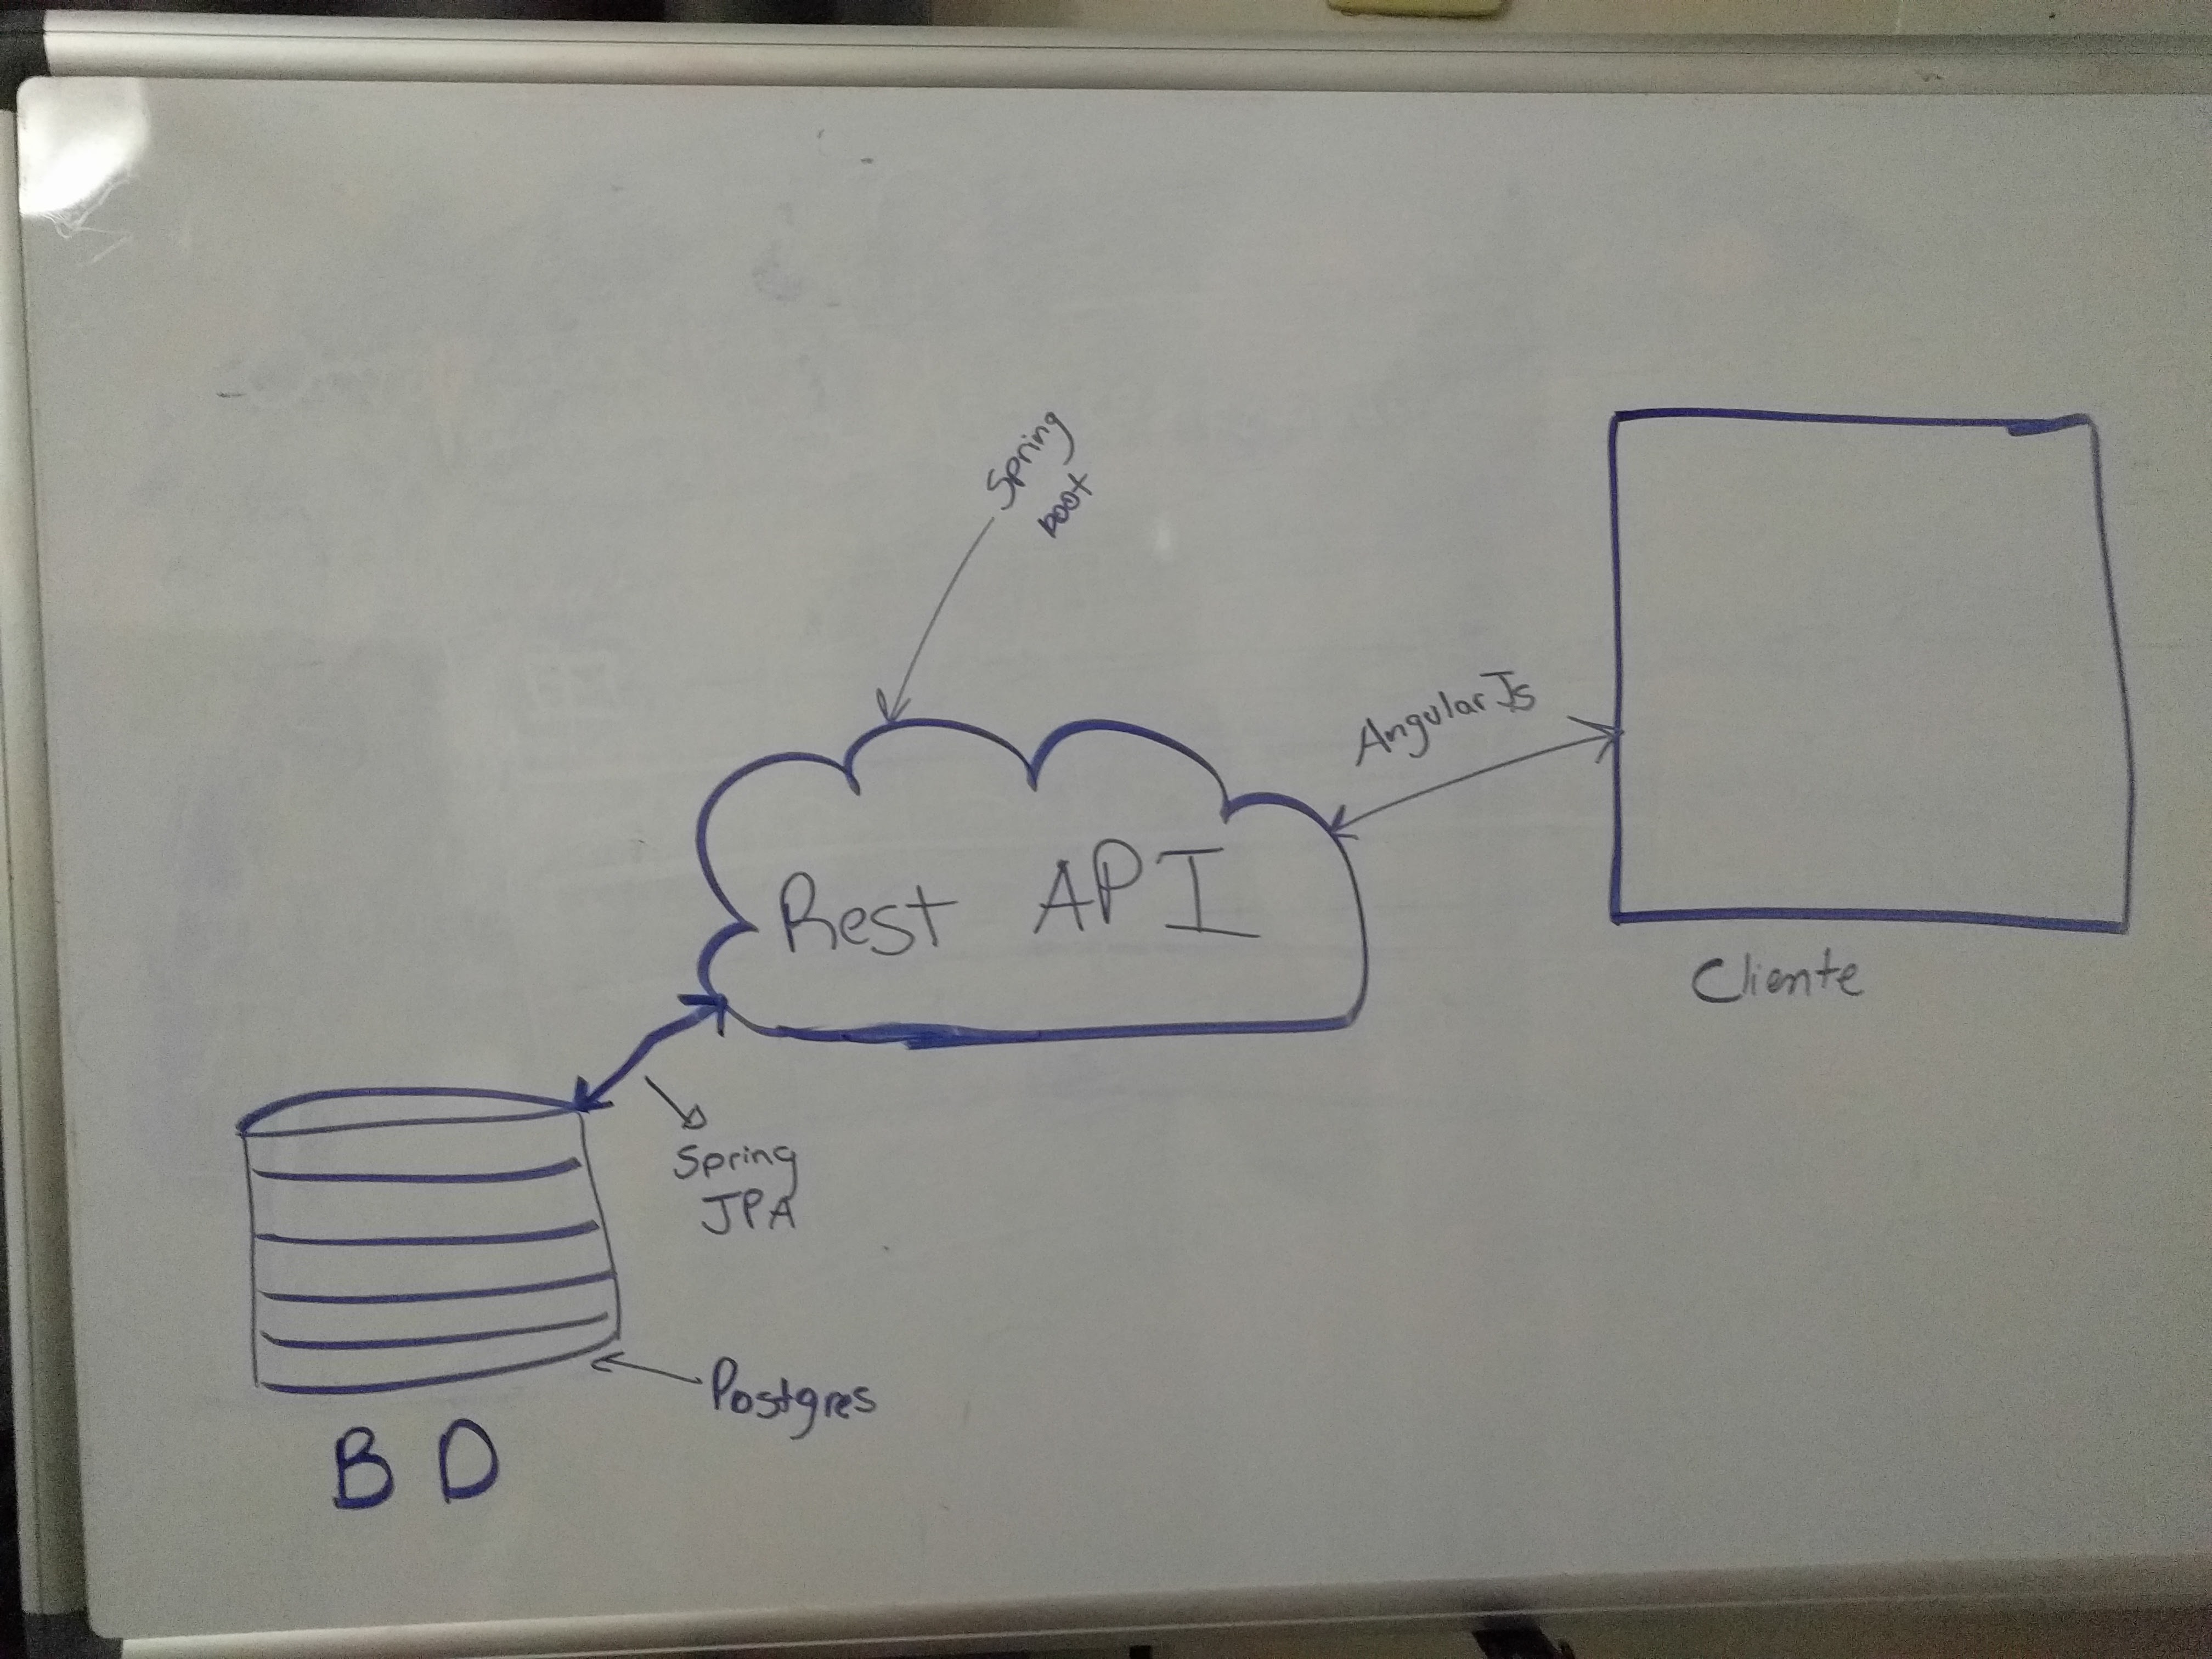 Spring
boot
Angular Js
Rest API
Cliente
Spring
JPA
Postgres
BD